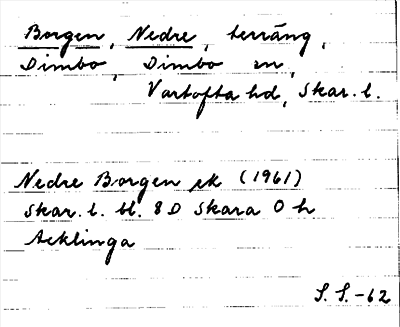 Borgen, Nedre, terräng,
Dimbo, Dimbo sn,
Vartofta hd, Skar. l.
Nedre Borgen ek (1961)
Skar. l. bl. 8 D Skara 0 h
Acklinga
S. S. -62